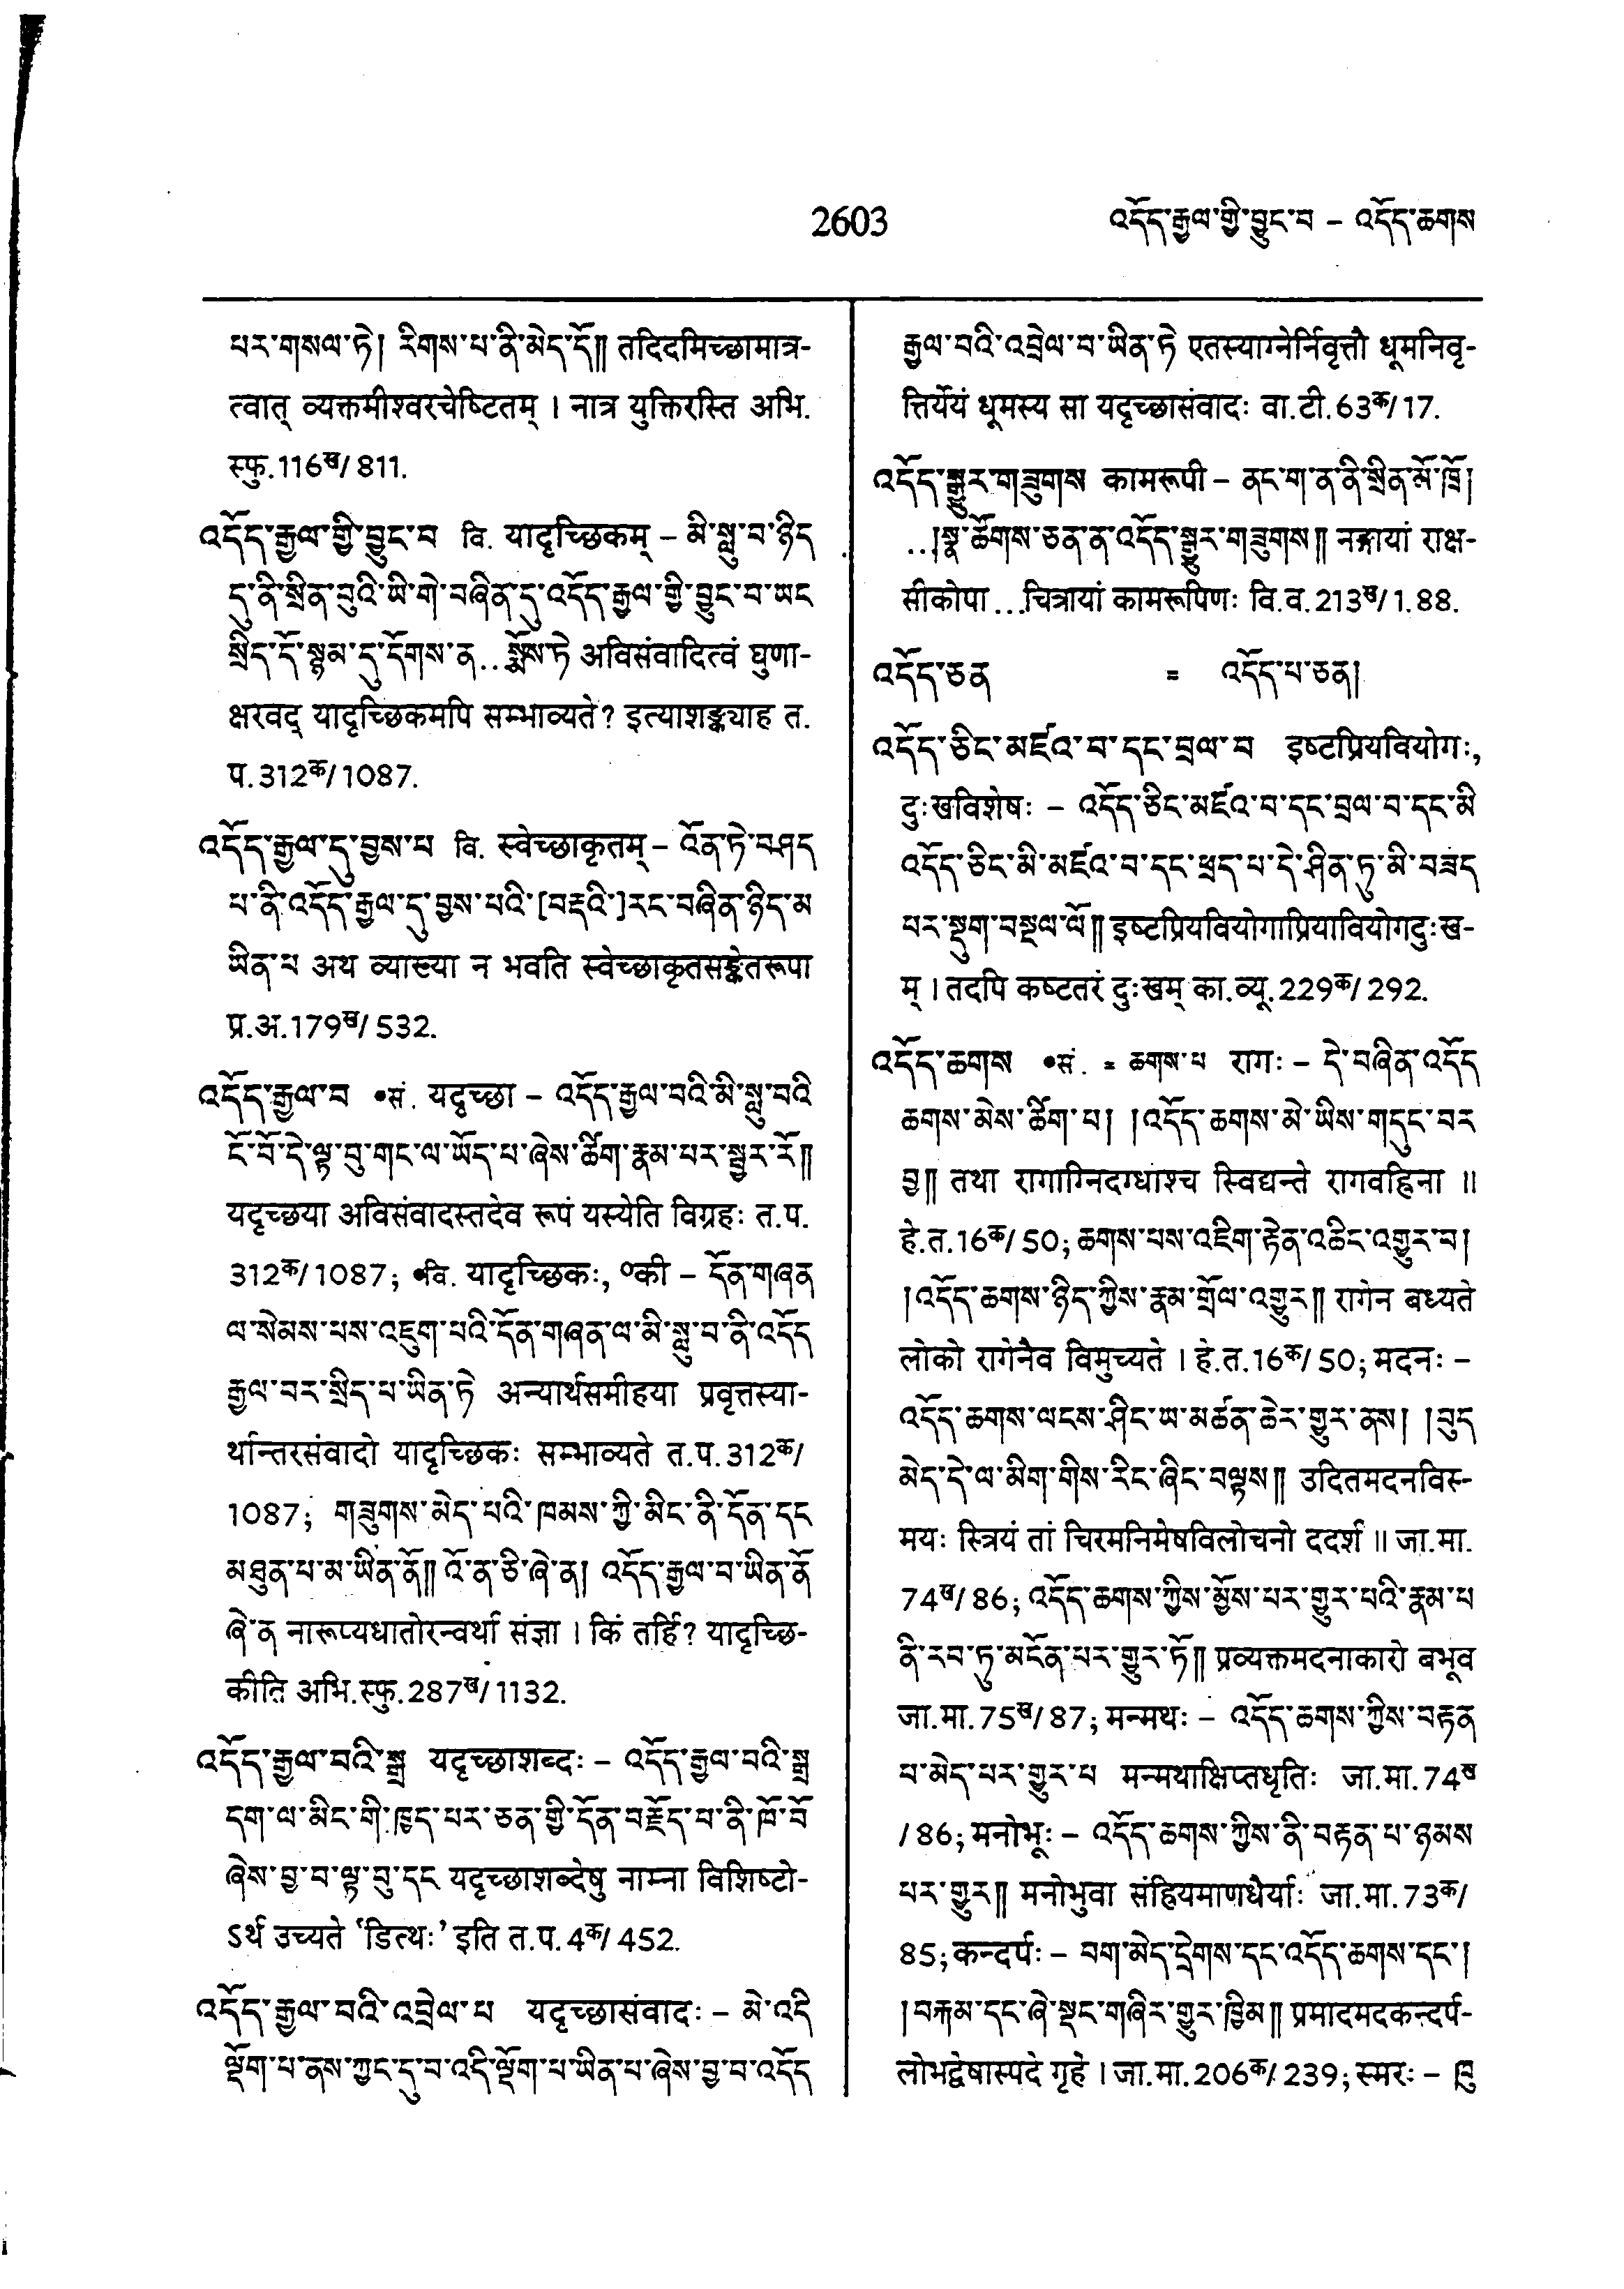 2603
འདོད་རྒྱལ་གྱི་བྱུང་བ – འདོད་ཆགས
པར་གསལ་ཏེ། རིགས་པ་ནི་མེད་དོ༎ तदिदमिच्छामात्र-
त्वात् व्यक्तमीश्वरचेष्टितम् । नात्र युक्तिरस्ति अभि.
स्फु.116ख/811.
འདོད་རྒྱལ་གྱི་བྱུང་བ वि. यादृच्छिकम् – མི་སླུ་བ་ཉིད
དུ་ནི་སྲིན་བུའི་ཡི་གེ་བཞིན་དུ་འདོད་རྒྱལ་གྱི་བྱུང་བ་ཡང
སྲིད་དོ་སྙམ་དུ་དོགས་ན...སྨོས་ཏེ अविसंवादित्वं घुणा-
क्षरवद् यादृच्छिकमपि सम्भाव्यते? इत्याशङ्क्याह त.
प.312क/1087.
འདོད་རྒྱལ་དུ་བྱས་པ वि. स्वेच्छाकृतम् – འོན་ཏེ་བཤད
པ་ནི་འདོད་རྒྱལ་དུ་བྱས་པའི་[བརྡའི་]རང་བཞིན་ཉིད་མ
ཡིན་པ अथ व्याख्या न भवति स्वेच्छाकृतसङ्केतरूपा
प्र.अ.179ख/532.
འདོད་རྒྱལ་བ •सं. यदृच्छा – འདོད་རྒྱལ་བའི་མི་སླུ་བའི
ངོ་བོ་དེ་ལྟ་བུ་གང་ལ་ཡོད་པ་ཞེས་ཚིག་རྣམ་པར་སྦྱར་རོ༎
यदृच्छया अविसंवादस्तदेव रूपं यस्येति विग्रहः त.प.
312क/1087; •वि. यादृच्छिकः, ०की – དོན་གཞན
ལ་སེམས་པས་འཇུག་པའི་དོན་གཞན་ལ་མི་སླུ་བ་ནི་འདོད
རྒྱལ་བར་སྲིད་པ་ཡིན་ཏེ अन्यार्थसमीहया प्रवृत्तस्या-
र्थान्तरसंवादो यादृच्छिकः सम्भाव्यते त.प.312क/
1087; གཟུགས་མེད་པའི་ཁམས་ཀྱི་མིང་ནི་དོན་དང
མཐུན་པ་མ་ཡིན་ནོ༎ འོ་ན་ཅི་ཞེ་ན། འདོད་རྒྱལ་བ་ཡིན་ནོ
ཞེ་ན नारूप्यधातोरन्वर्था संज्ञा । किं तर्हि? यादृच्छि-
कीति अभि.स्फु.287ख/1132.
འདོད་རྒྱལ་བའི་སྒྲ यदृच्छाशब्दः – འདོད་རྒྱལ་བའི་སྒྲ
དག་ལ་མིང་གི་ཁྱད་པར་ཅན་གྱི་དོན་བརྗོད་པ་ནི་ཁོ་བོ
ཞེས་བྱ་བ་ལྟ་བུ་དང यदृच्छाशब्देषु नाम्ना विशिष्टो-
ऽर्थ उच्यते ‘डित्थः’ इति त.प.4क/452.
འདོད་རྒྱལ་བའི་འབྲེལ་པ यदृच्छासंवादः – མེ་འདི
ལྡོག་པ་ནས་ཀྱང་དུ་བ་འདི་ལྡོག་པ་ཡིན་པ་ཞེས་བྱ་བ་འདོད
རྒྱལ་བའི་འབྲེལ་བ་ཡིན་ཏེ एतस्याग्नेर्निवृत्तौ धूमनिवृ-
त्तिर्येयं धूमस्य सा यदृच्छासंवादः वा.टी.63क/17.
འདོད་སྒྱུར་གཟུགས कामरूपी – ནང་ག་ན་ནི་སྲིན་མོ་ཁྲོ།
...།སྣ་ཚོགས་ཅན་ན་འདོད་སྒྱུར་གཟུགས༎ नङ्गायां राक्ष-
सीकोपा ...चित्रायां कामरूपिणः वि.व.213ख/1.88.
འདོད་ཅན = འདོད་པ་ཅན།
འདོད་ཅིང་མཛའ་བ་དང་བྲལ་བ इष्टप्रियवियोगः,
दुःखविशेषः – འདོད་ཅིང་མཛའ་བ་དང་བྲལ་བ་དང་མི
འདོད་ཅིང་མི་མཛའ་བ་དང་ཕྲད་པ་དེ་ཤིན་ཏུ་མི་བཟད
པར་སྡུག་བསྔལ་ལོ༎ इष्टप्रियवियोगाप्रियावियोगदुःख-
म् । तदपि कष्टतरं दुःखम् का.व्यू.229क/292.
འདོད་ཆགས •सं. = ཆགས་པ रागः – དེ་བཞིན་འདོད
ཆགས་མེས་ཚིག་པ། །འདོད་ཆགས་མེ་ཡིས་གདུང་བར
བྱ༎ तथा रागाग्निदग्धाश्च स्विद्यन्ते रागवह्निना ॥
हे.त.16क/50; ཆགས་པས་འཇིག་རྟེན་འཆིང་འགྱུར་བ།
།འདོད་ཆགས་ཉིད་ཀྱིས་རྣམ་གྲོལ་འགྱུར༎ रागेन बध्यते
लोको रागेनैव विमुच्यते । हे.त.16क/50; मदनः –
འདོད་ཆགས་ལངས་ཤིང་ཡ་མཚན་ཆེར་གྱུར་ནས། །བུད
མེད་དེ་ལ་མིག་གིས་རིང་ཞིང་བལྟས༎ उदितमदनविस्-
मयः स्त्रियं तां चिरमनिमेषविलोचनो ददर्श ॥ जा.मा.
74ख/86; འདོད་ཆགས་ཀྱིས་མྱོས་པར་གྱུར་པའི་རྣམ་པ
ནི་རབ་ཏུ་མངོན་པར་གྱུར་ཏོ༎ प्रव्यक्तमदनाकारो बभूव
जा.मा.75ख/87; मन्मथः – འདོད་ཆགས་ཀྱིས་བརྟན
པ་མེད་པར་གྱུར་པ मन्मथाक्षिप्तधृतिः जा.मा.74ख
/86; मनोभूः – འདོད་ཆགས་ཀྱིས་ནི་བརྟན་པ་ཉམས
པར་གྱུར༎ मनोभुवा संह्रियमाणधैर्याः जा.मा.73क/
85; कन्दर्पः – བག་མེད་དྲེགས་དང་འདོད་ཆགས་དང་།
།བརྐམ་དང་ཞེ་སྡང་གཞིར་གྱུར་ཁྱིམ༎ प्रमादमदकन्दर्प-
लोभद्वेषास्पदे गृहे । जा.मा.206क/239; स्मरः – ཁུ